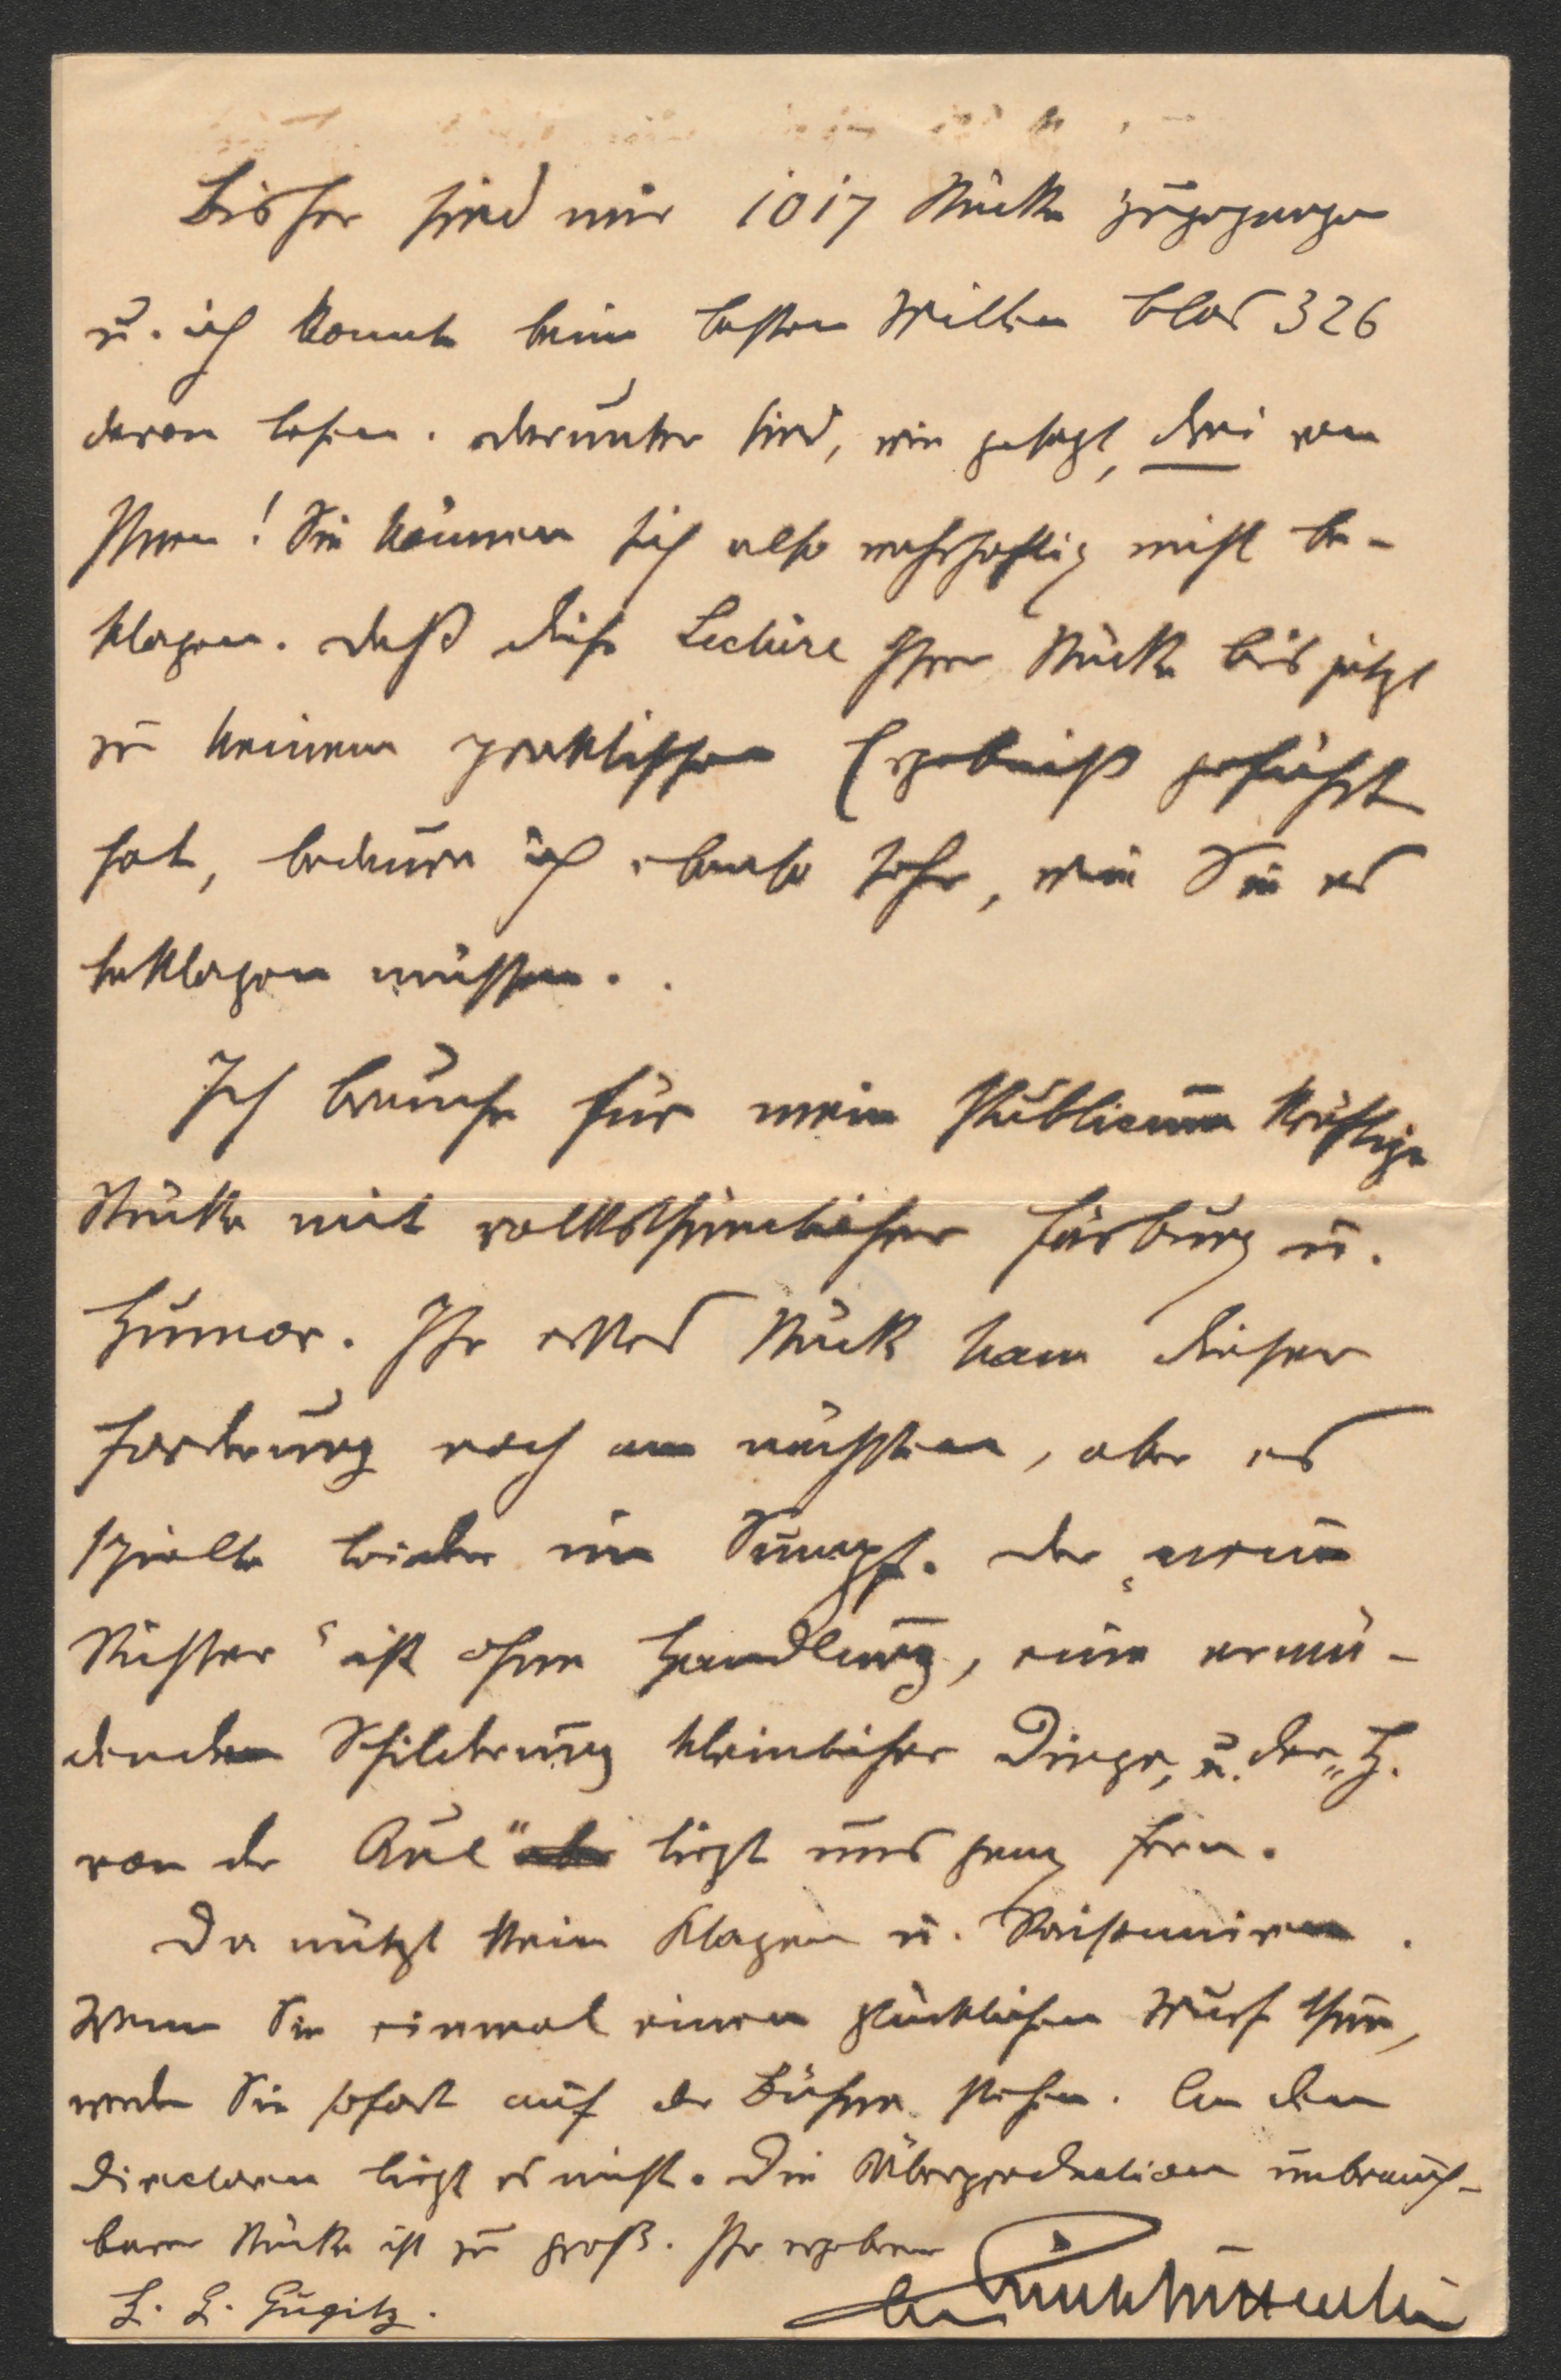 Bisher sind mir 1017 Stücke zugegangen
u. ich konnte beim besten Willen blos 326
davon lesen. Darunter sind, wie gesagt, drei von
Ihnen! Sie können sich also wahrhaftig nicht be-
klagen. Daß diese Lectüre Ihrer Stücke bis jetzt
zu keinem praktischen Ergebniß geführt
hat, bedaure ich ebenso sehr, wie Sie es
beklagen müssen.
Ich brauche für mein Publicum kräftige
Stücke mit volksthümlicher Färbung u.
Humor. Ihr erstes Stück kam dieser
Forderung noch am nächsten, aber es
spielte leider im Sumpf. Der „neue
Richter“ ist ohne Handlung, eine ermü-
dende Schilderung kleinlicher Dinge, u. der „H.
von der Aue“ liegt uns ganz fern.
Da nützt kein Klagen u. Raisonniren.
Wenn Sie einmal einen glücklichen Wurf thun,
werden Sie sofort auf der Bühne stehen. An den
Directoren liegt es nicht. Die Überproduction unbrauch-
barer Stücke ist zu groß. Ihr ergebener
H. G. Gugitz.